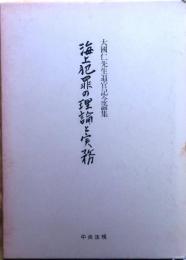 大國仁先生退官記念論集
海上犯罪の理論と実務
中央法規